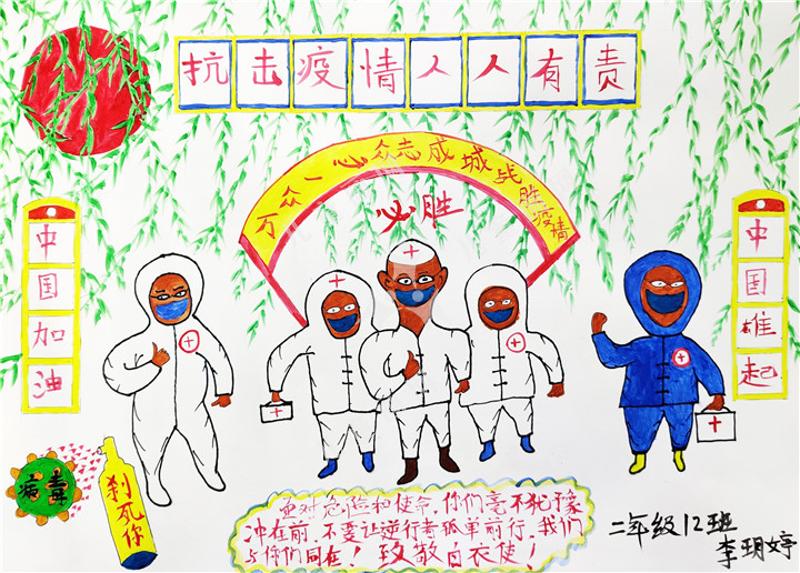 抗击疫情人人有责
万众一心众志成城战胜疫情
必胜
中国加油
中国雄起
病毒
刹死你
面对危险和使命,你们毫不犹豫
冲在前,不要让逆行者孤单前行,我们
与你们同在!致敬白衣使!
二年级12班
李玥婷